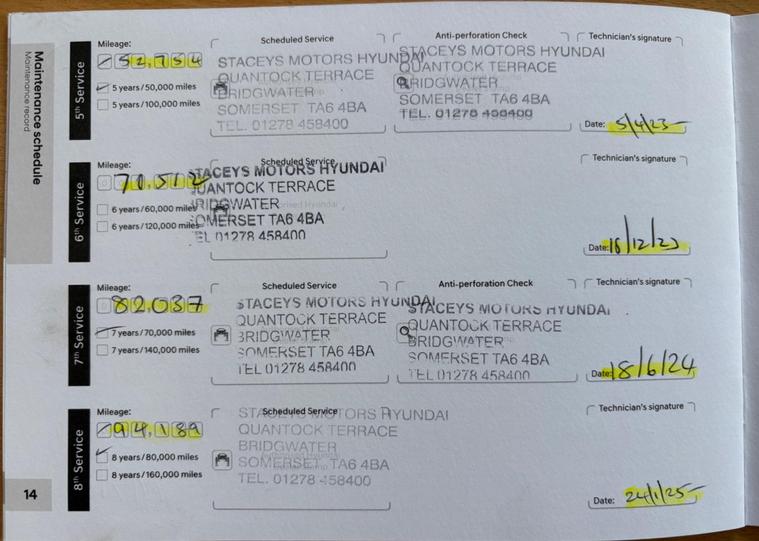 Maintenance schedule
Maintenance record
5th Service
Mileage:
52,754
5 years/50,000 miles
5 years/100,000 miles
Scheduled Service
STACEYS MOTORS HYUNDAI
QUANTOCK TERRACE
BRIDGWATER
SOMERSET TA6 4BA
TEL. 01278 458400
Anti-perforation Check
STACEYS MOTORS HYUNDAI
QUANTOCK TERRACE
BRIDGWATER
SOMERSET TA6 4BA
TEL. 01278 458400
Technician's signature
Date: 5/4/23
6th Service
Mileage:
70,512
6 years/60,000 miles
6 years/120,000 miles
Scheduled Service
STACEYS MOTORS HYUNDAI
QUANTOCK TERRACE
BRIDGWATER
SOMERSET TA6 4BA
TEL 01278 458400
Technician's signature
Date: /12/23
7th Service
Mileage:
82037
7 years/70,000 miles
7 years/140,000 miles
Scheduled Service
STACEYS MOTORS HYUNDAI
QUANTOCK TERRACE
BRIDGWATER
SOMERSET TA6 4BA
TEL 01278 458400
Anti-perforation Check
STACEYS MOTORS HYUNDAI
QUANTOCK TERRACE
BRIDGWATER
SOMERSET TA6 4BA
TEL 01278 458400
Technician's signature
Date: 18/6/24
8th Service
Mileage:
94,189
8 years/80,000 miles
8 years/160,000 miles
Scheduled Service
STACEYS MOTORS HYUNDAI
QUANTOCK TERRACE
BRIDGWATER
SOMERSET TA6 4BA
TEL. 01278 458400
Technician's signature
Date: 24/1/25
14